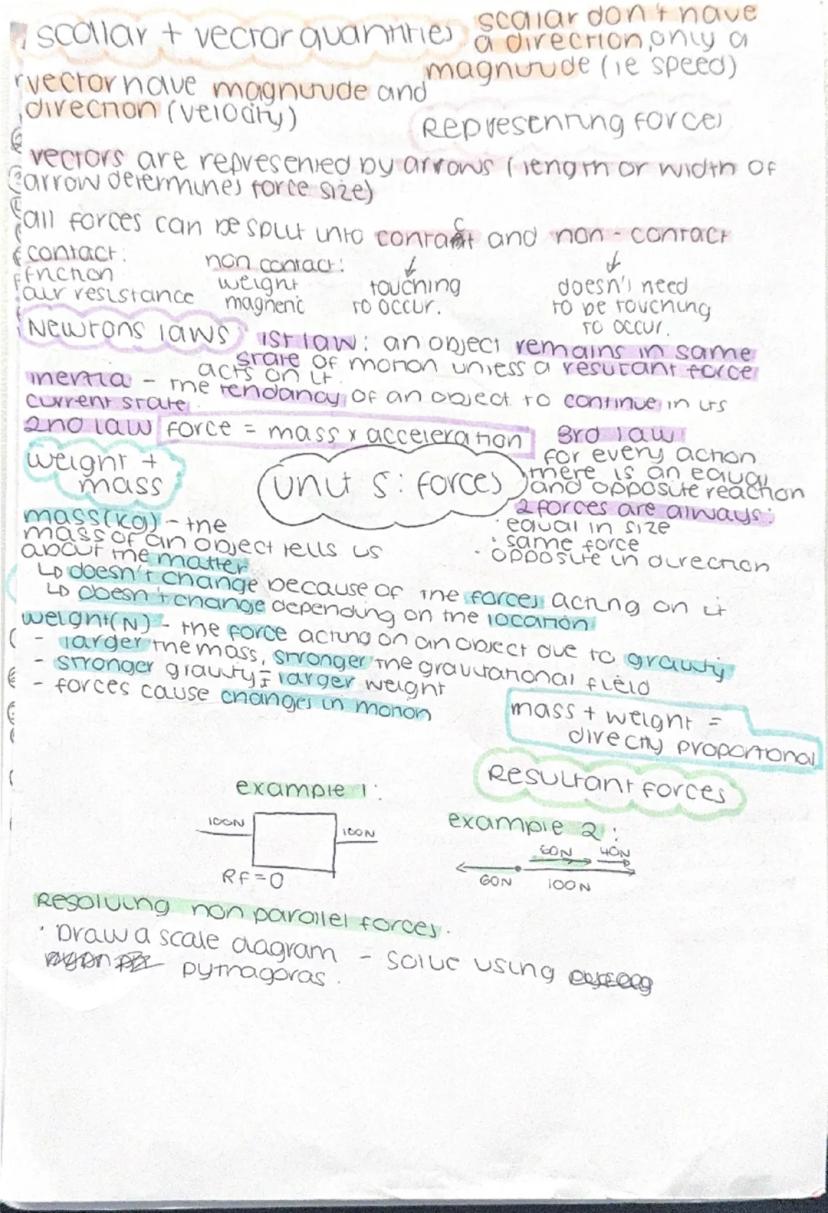 scallar + vector quantities
scalar don't have
a direction, only a
magnitude (ie speed)
vector have magnitude and
direction (velocity)
Representing forces
vectors are represented by arrows (length or width of
arrow determines force size)
all forces can be split into contact and non-contact
contact:
friction
air resistance
non contact:
weight
magnetic
touching
to occur.
doesn't need
to be touching
to occur.
Newtons laws
1st law: an object remains in same
state of motion unless a resultant force
acts on it.
inertia - the tendancy of an object to continue in its
current state.
2nd law force = mass x acceleration
3rd law
for every action
there is an equal
and opposite reaction
2 forces are always:
· equal in size
· same force
· opposite in direction
weight +
mass
Unit 5: forces
mass (kg) - the
mass of an object tells us
about the matter
↳ doesn't change because of the forces acting on it
↳ doesn't change depending on the location
weight (N) - the force acting on an object due to gravity
- larger the mass, stronger the gravitational field
- stronger gravity = larger weight
- forces cause changes in motion
mass + weight =
directly proportional
Resultant forces
example 1:
100N
100N
RF=0
example 2:
60N 40N
60N 100N
Resolving non parallel forces.
· Draw a scale diagram - solve using
pythagoras.